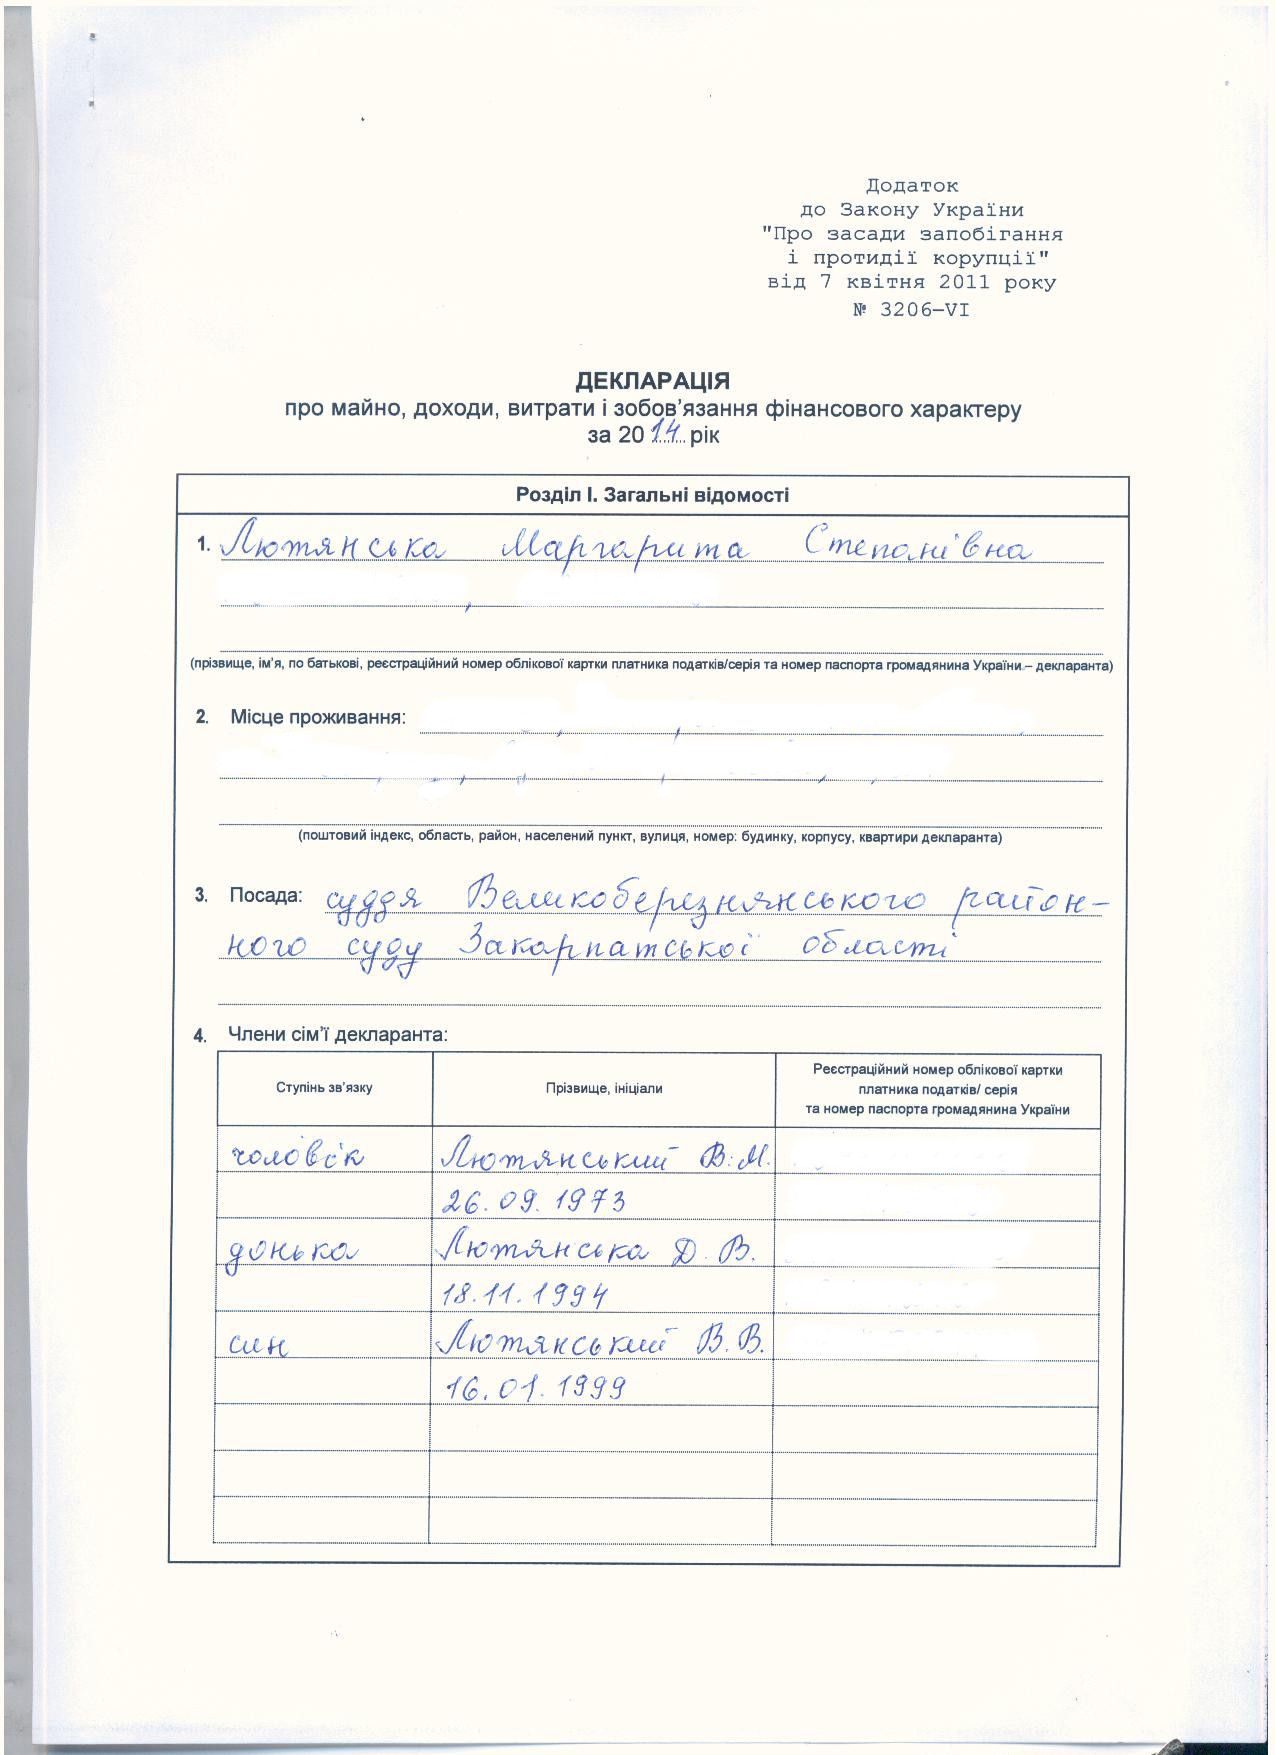 Додаток
до Закону України
"Про засади запобігання
і протидії корупції"
від 7 квітня 2011 року
№ 3206-VI
ДЕКЛАРАЦІЯ
про майно, доходи, витрати і зобов'язання фінансового характеру
за 2014 рік
Розділ I. Загальні відомості
1. Лютянська Маргарита Степанівна
(прізвище, ім'я, по батькові, реєстраційний номер облікової картки платника податків/серія та номер паспорта громадянина України – декларанта)
2. Місце проживання:
(поштовий індекс, область, район, населений пункт, вулиця, номер: будинку, корпусу, квартири декларанта)
3. Посада: суддя Великоберезнянського район-
ного суду Закарпатської області
4. Члени сім'ї декларанта:
Ступінь зв'язку Прізвище, ініціали Реєстраційний номер облікової картки
платника податків/ серія
та номер паспорта громадянина України
чоловік Лютянський В.М.
26.09.1973
донька Лютянська Д.В.
18.11.1994
син Лютянський В.В.
16.01.1999